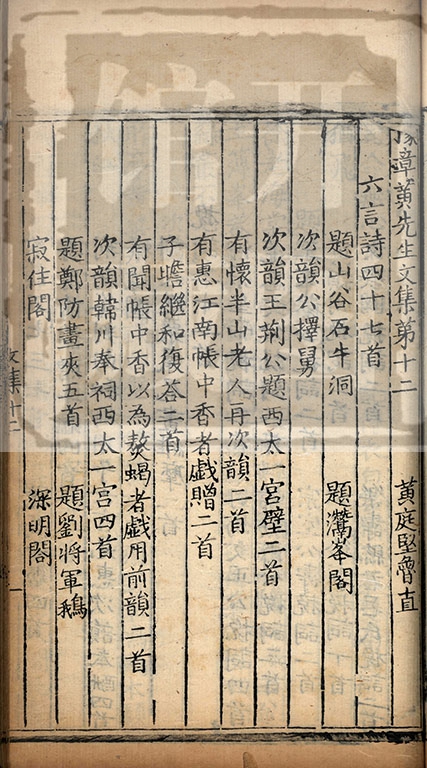 豫章黃先生文集第十二
黃庭堅魯直
六言詩四十七首
題山谷石牛洞 題灊峯閣
次韻公擇舅
次韻王荆公題西太一宮壁二首
有懷半山老人再次韻二首
有惠江南帳中香者戲贈二首
子瞻繼和復荅二首
有聞帳中香以為熬蝎者戲用前韻二首
次韻韓川奉祠西太一宮四首
題鄭防畫夾五首 題劉將軍鵝
寂住閣 深明閣
文集十二
一